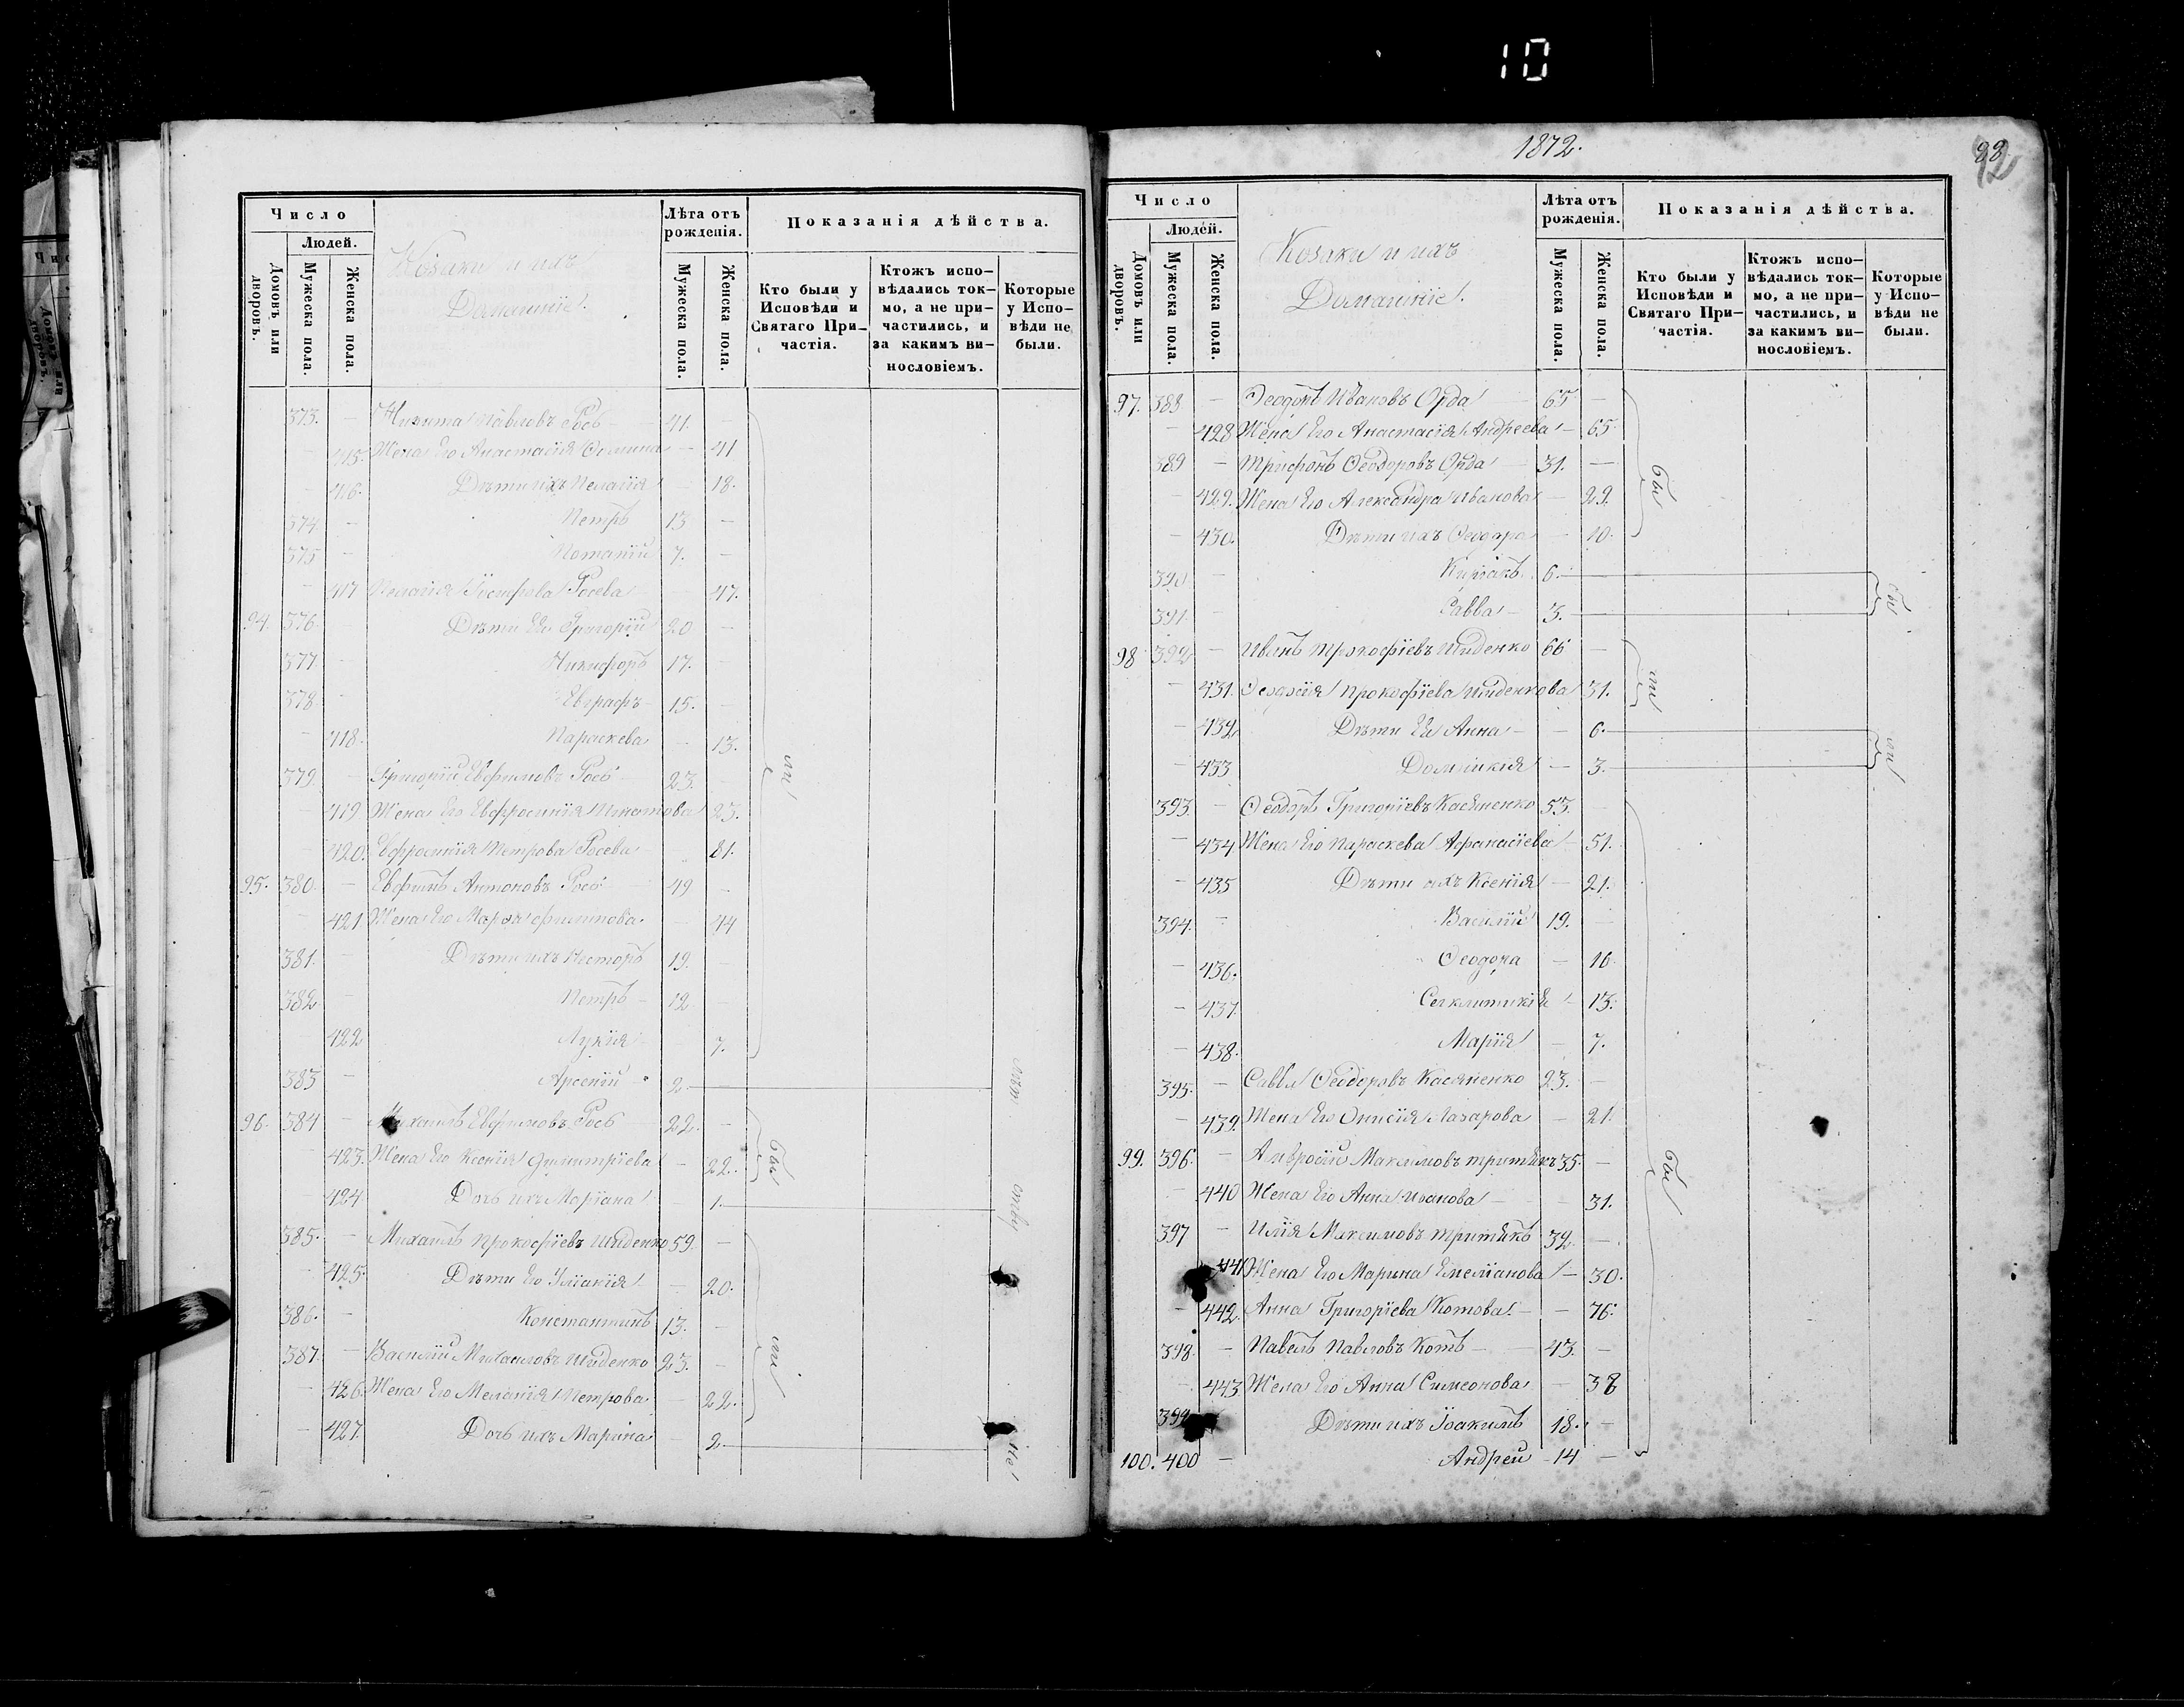 10
Число
Людей.
Домовъ или дворовъ.
Мужеска пола.
Женска пола.
Козаки и ихъ
Домашніе.
Лѣта отъ рожденія.
Мужеска пола.
Женска пола.
Показанія дѣйства.
Кто были у Исповѣди и Святаго Причастія.
Ктожъ исповѣдались токмо, а не причастились, и за какимъ винословіемъ.
Которые у Исповѣди не были.
373. — Никита Павловъ Рось — 41. —
— 415. Жена Его Анастасія — 41
— 416. Дѣти ихъ Пелагія — 18.
374 — Петръ 13 —
375 — Потапій 7. —
— 417 Пелагія Росева — 47.
94. 376. Дѣти Ея Григорій 20 —
377 — Никифоръ 17. —
378 — Евграфъ 15. —
— 418. Параскева — 13.
379. — Григорій Евфимовъ Рось 23. —
— 419 Жена Его Евфросинія Игнатова 23.
— 420. Евфросинія Петрова Росева — 81.
95. 380. — Евфимъ Антоновъ Рось 49 —
— 421. Жена Его Марѳа Филипова — 44
381. — Дѣти ихъ Несторъ 19. —
382 — Петръ — 12 —
422 Лукія 7.
383 — Арсеній 2.
96. 384 — Михаилъ Евфимовъ Рось 22. —
— 423. Жена Его Ксенія Димитріева — 22.
— 424 Дочь ихъ Маріана — 1.
385. — Михаилъ Прокофіевъ Шиденко 59. —
— 425. Дѣти Его — 20.
386. — Константинъ 13. —
387 — Василій Михаиловъ Шиденко 23. —
— 426. Жена Его Меланія Петрова — 22.
— 427. Дочь ихъ Марина — 2.
ли
бы
ли
лѣт
не
1872.
Число
Людей.
Домовъ или дворовъ.
Мужеска пола.
Женска пола.
Козаки и ихъ
Домашніе.
Лѣта отъ рожденія.
Мужеска пола.
Женска пола.
Показанія дѣйства.
Кто были у Исповѣди и Святаго Причастія.
Ктожъ исповѣдались токмо, а не причастились, и за какимъ винословіемъ.
Которые у Исповѣди не были.
97. 388 — Ѳеодоръ Ивановъ Орда 65 —
— 428 Жена Его Анастасія Андреева — 65.
389 — Трифонъ Ѳеодоровъ Орда 31. —
— 429. Жена Его Александра Иванова — 29.
— 430. Дѣти ихъ Ѳеодора — 10.
390 — Киріакъ 6.
391 — Савва 3.
98 392 — Иванъ Прокофіевъ Шиденко 66 —
— 431. Прокофіева Шиденкова 31.
— 432 Дѣти Ея Анна — — 6.
— 433 Домникія — 3.
393. — Ѳеодоръ Григоріевъ Касяненко 53. —
— 434 Жена Его Параскева Афанасіева — 51.
— 435 Дѣти ихъ Ксенія — 21.
394. — Василій 19. —
— 436. Ѳеодора — 16
— 437. Сегклитикія — 13.
— 438. Марія — 7.
395. — Савва Ѳеодоровъ Касяненко 23. —
— 439. Жена Его Онисія Лазарова — 21.
99. 396. — Амвросій Максимовъ Притыкъ 35. —
— 440 Жена Его Анна Иванова — 31.
397 — Илія Максимовъ Притыкъ 32. —
441 Жена Его Марина Емеліанова — 30.
— 442. Анна Григоріева Котова — — 76.
398. — Павелъ Павловъ Котъ — 43. —
— 443. Жена Его Анна Симеонова — 38
399. Дѣти ихъ Іоакимъ 18. —
100. 400 — Андрей — 14 —
бы
бы
ли
ли
бы